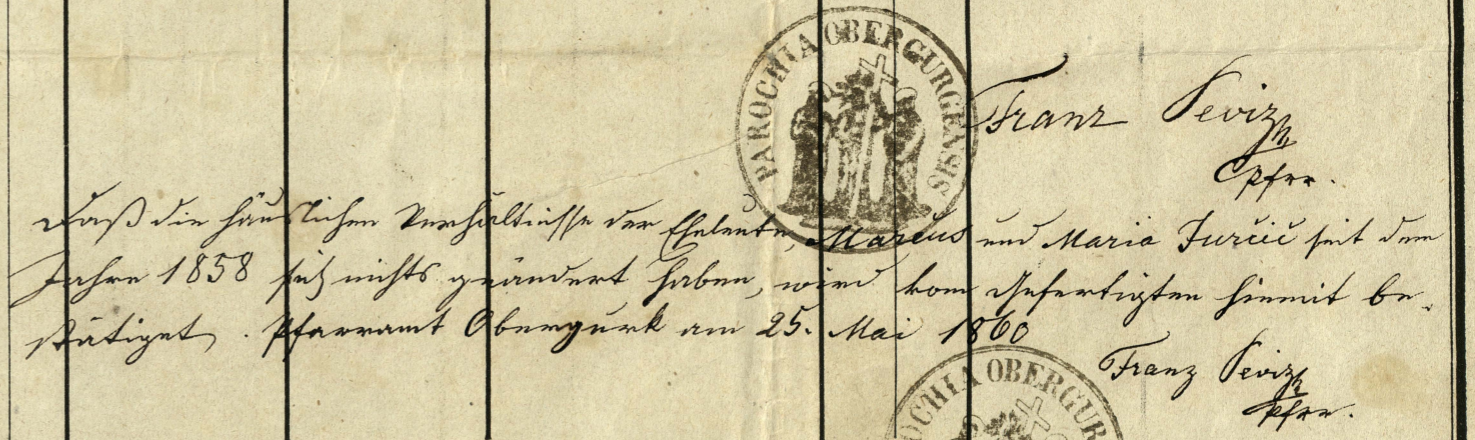 PAROCHIA OBERGURGENSIS
Franz Peviz
Pfrr.
Daß die häuslichen Verhältnisse der Eheleute, Marcus und Maria Jurčič seit dem
Jahre 1858 sich nichts geändert haben, wird vom Gefertigten hiemit be-
stätiget. Pfarramt Obergurk am 25. Mai 1860
Franz Peviz
Pfrr.
OCHIA OBERGUR